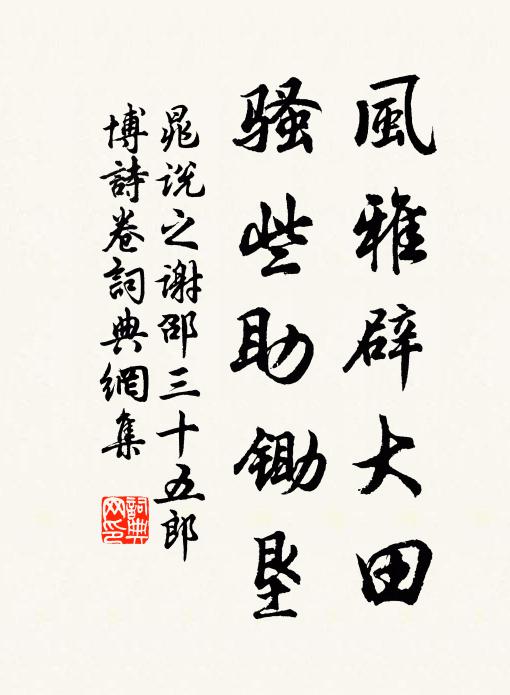 風雅辟大田
騷些助鋤垦
晁说之谢邵三十五郎
博詩卷詞典網集
詞典
网印